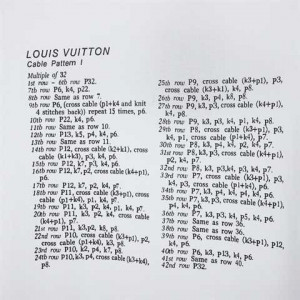 LOUIS VUITTON
Cable Pattern I
Multiple of 32
1st row - 6th row P32.
7th row P6, k4, p22.
8th row Same as row 7.
9th row P6, (cross cable (p1+k4 and knit
4 stitches back)) repeat 15 times, p6.
10th row P22, k4, p6.
11th row Same as row 10.
12th row P13, k5, p4, k4, p6.
13th row Same as row 11.
14th row P12, cross cable (k2+k1), cross
cable (k1+k3), p3, k4, p6.
15th row P12, k7, p3, k4, p6.
16th row P12, k7, p3, cross cable (k4+p1),
p6.
17th row P12, k7, p2, k4, p7.
18th row P11, cross cable (k3+p1), cross
cable (p1+k4), p1, k4, p7.
19th row P11, k3, p2, k4, p1, k4, p7.
20th row P11, k3, p2, k4, cross cable (k4+
p1), p7.
21st row P11, k3, p2, k8, p8.
22nd row P10, cross cable (k3+p1), p2,
cross cable (p1+k4), k3, p8.
23rd row P10, k2, p4, k7, p8.
24th row P10, k3, p4, cross cable (k3+k4),
p8.
25th row P9, cross cable (k3+p1), p3,
cross cable (p1+k4), k3, p8.
26th row P9, k3, p4, k8, p8.
27th row P9, k3, p3, cross cable (k4+p1),
k4, p8.
28th row P9, k3, p3, k4, p1, k4, p8.
29th row P8, cross cable (k3+p1), p3, k4,
p1, cross cable (k4+p1), p7.
30th row P8, k3, p4, k4, p2, k4, p7.
31st row P8, k3, p3, cross cable (k4+p1),
p2, k4, p7.
32nd row P8, k3, p3, k4, p3, k4, p7.
33rd row P7, cross cable (k3+p1), p3, k4,
p3, cross cable (k4+p1), p6.
34th row P7, k3, p4, k4, p4, k4, p6.
35th row P7, k3, p3, cross cable (k4+p1),
p4, k4, p6.
36th row P7, k3, p3, k4, p5, k4, p6.
37th row Same as row 36.
38th row Same as row 36.
39th row P6, cross cable (k3+p1), p12,
k4, p6.
40th row P6, k3, p13, k4, p6.
41st row Same as row 40.
42nd row P32.